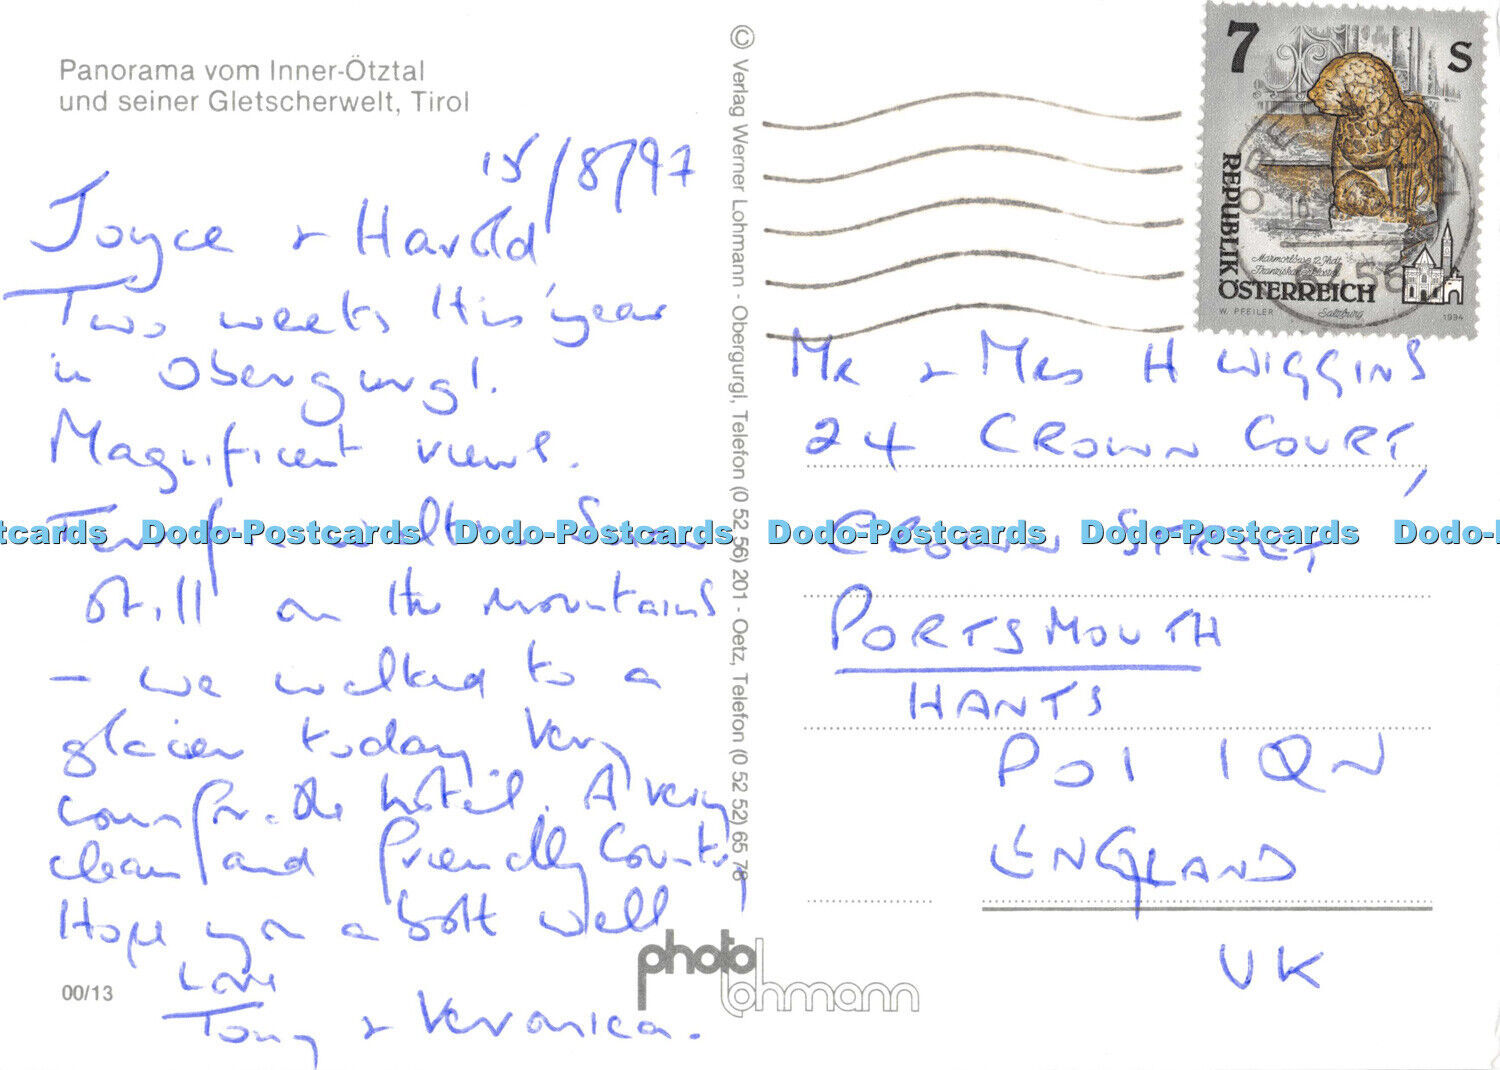 Panorama vom Inner-Ötztal
und seiner Gletscherwelt, Tirol
15/8/97
Joyce & Harold
Two weeks this year
in Obergurgl.
Magnificent views.
Terrific walks. Snow
still on the mountains
- we walked to a
glacier today. Very
comfortable hotel. A very
clean and friendly Country
Hope you are both well
Love
Tony & Veronica.
00/13
© Verlag Werner Lohmann - Obergurgl, Telefon (0 52 56) 201 - Oetz, Telefon (0 52 52) 65 78
photo lohmann
7 S
REPUBLIK
ÖSTERREICH
Marmorlöwe, 12. Jhdt.
Franziskanerkloster
Salzburg
W. PFEILER
1994
MR & MRS H WIGGINS
24 CROWN COURT,
CROWN STREET
PORTSMOUTH
HANTS
PO1 1QN
ENGLAND
UK
Dodo-Postcards Dodo-Postcards Dodo-Postcards Dodo-Postcards